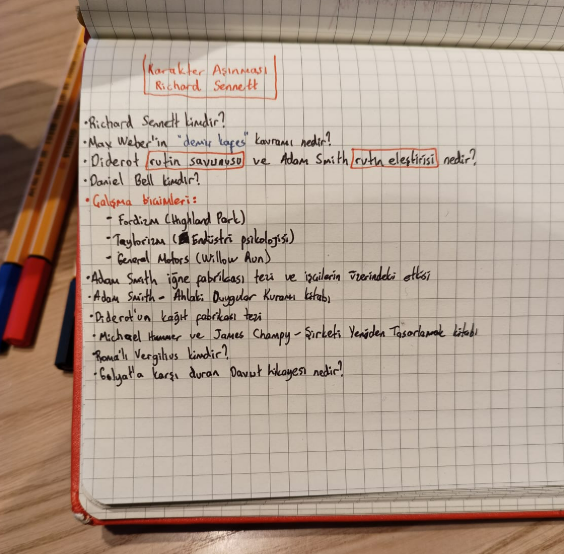 Karakter Aşınması
Richard Sennett
• Richard Sennett kimdir?
• Max Weber'in "demir kafes" kavramı nedir?
• Diderot rutin savunusu ve Adam Smith rutin eleştirisi nedir?
• Daniel Bell kimdir?
• Çalışma biçimleri:
- Fordizm (Highland Park)
- Taylorizm (Endüstri psikolojisi)
- General Motors (Willow Run)
• Adam Smith iğne fabrikası tezi ve işçilerin üzerindeki etkisi
• Adam Smith - Ahlaki Duygular Kuramı kitabı
• Diderot'un kağıt fabrikası tezi
• Michael Hammer ve James Champy - Şirketi Yeniden Tasarlamak kitabı
• Roma'lı Vergilius kimdir?
• Golyat'a karşı duran Davut hikayesi nedir?